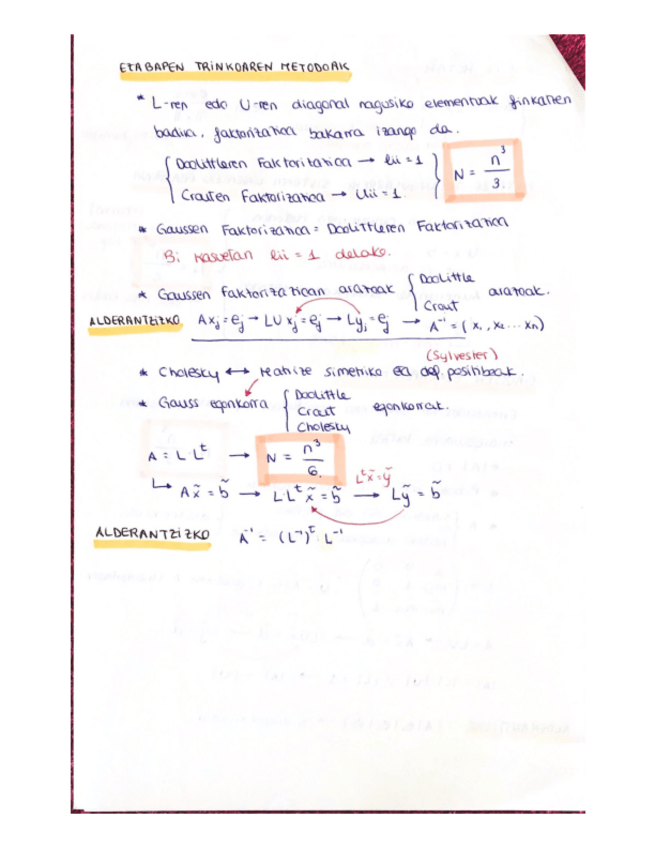 ETABAPEN TRINKOAREN METODOAK
* L-ren edo U-ren diagonal nagusiko elementuak finkatzen
badira, faktorizazioa bakarra izango da.
{ Doolittleren Faktorizazioa → lii = 1
Crouten Faktorizazioa → Uii = 1. } N = n³/3.
* Gaussen Faktorizazioa = Doolittleren Faktorizazioa
Bi kasuetan lii = 1 delako.
* Gaussen faktorizazioan arazoak { Doolittle
Crout arazoak.
ALDERANTZIZKO Axj = ej → LUxj = ej → Lyj = ej → A⁻¹ = (x1, x2 ... xn)
(Sylvester)
* Cholesky ↔ Matrize simetriko eta def. positiboak.
* Gauss egonkorra { Doolittle
Crout
Cholesky egonkorrak.
A = L·Lᵗ → N = n³/6.
Lᵗx̃ = ỹ
↳ Ax̃ = b̃ → L·Lᵗx̃ = b̃ → Lỹ = b̃
ALDERANTZIZKO A⁻¹ = (L⁻¹)ᵗ · L⁻¹